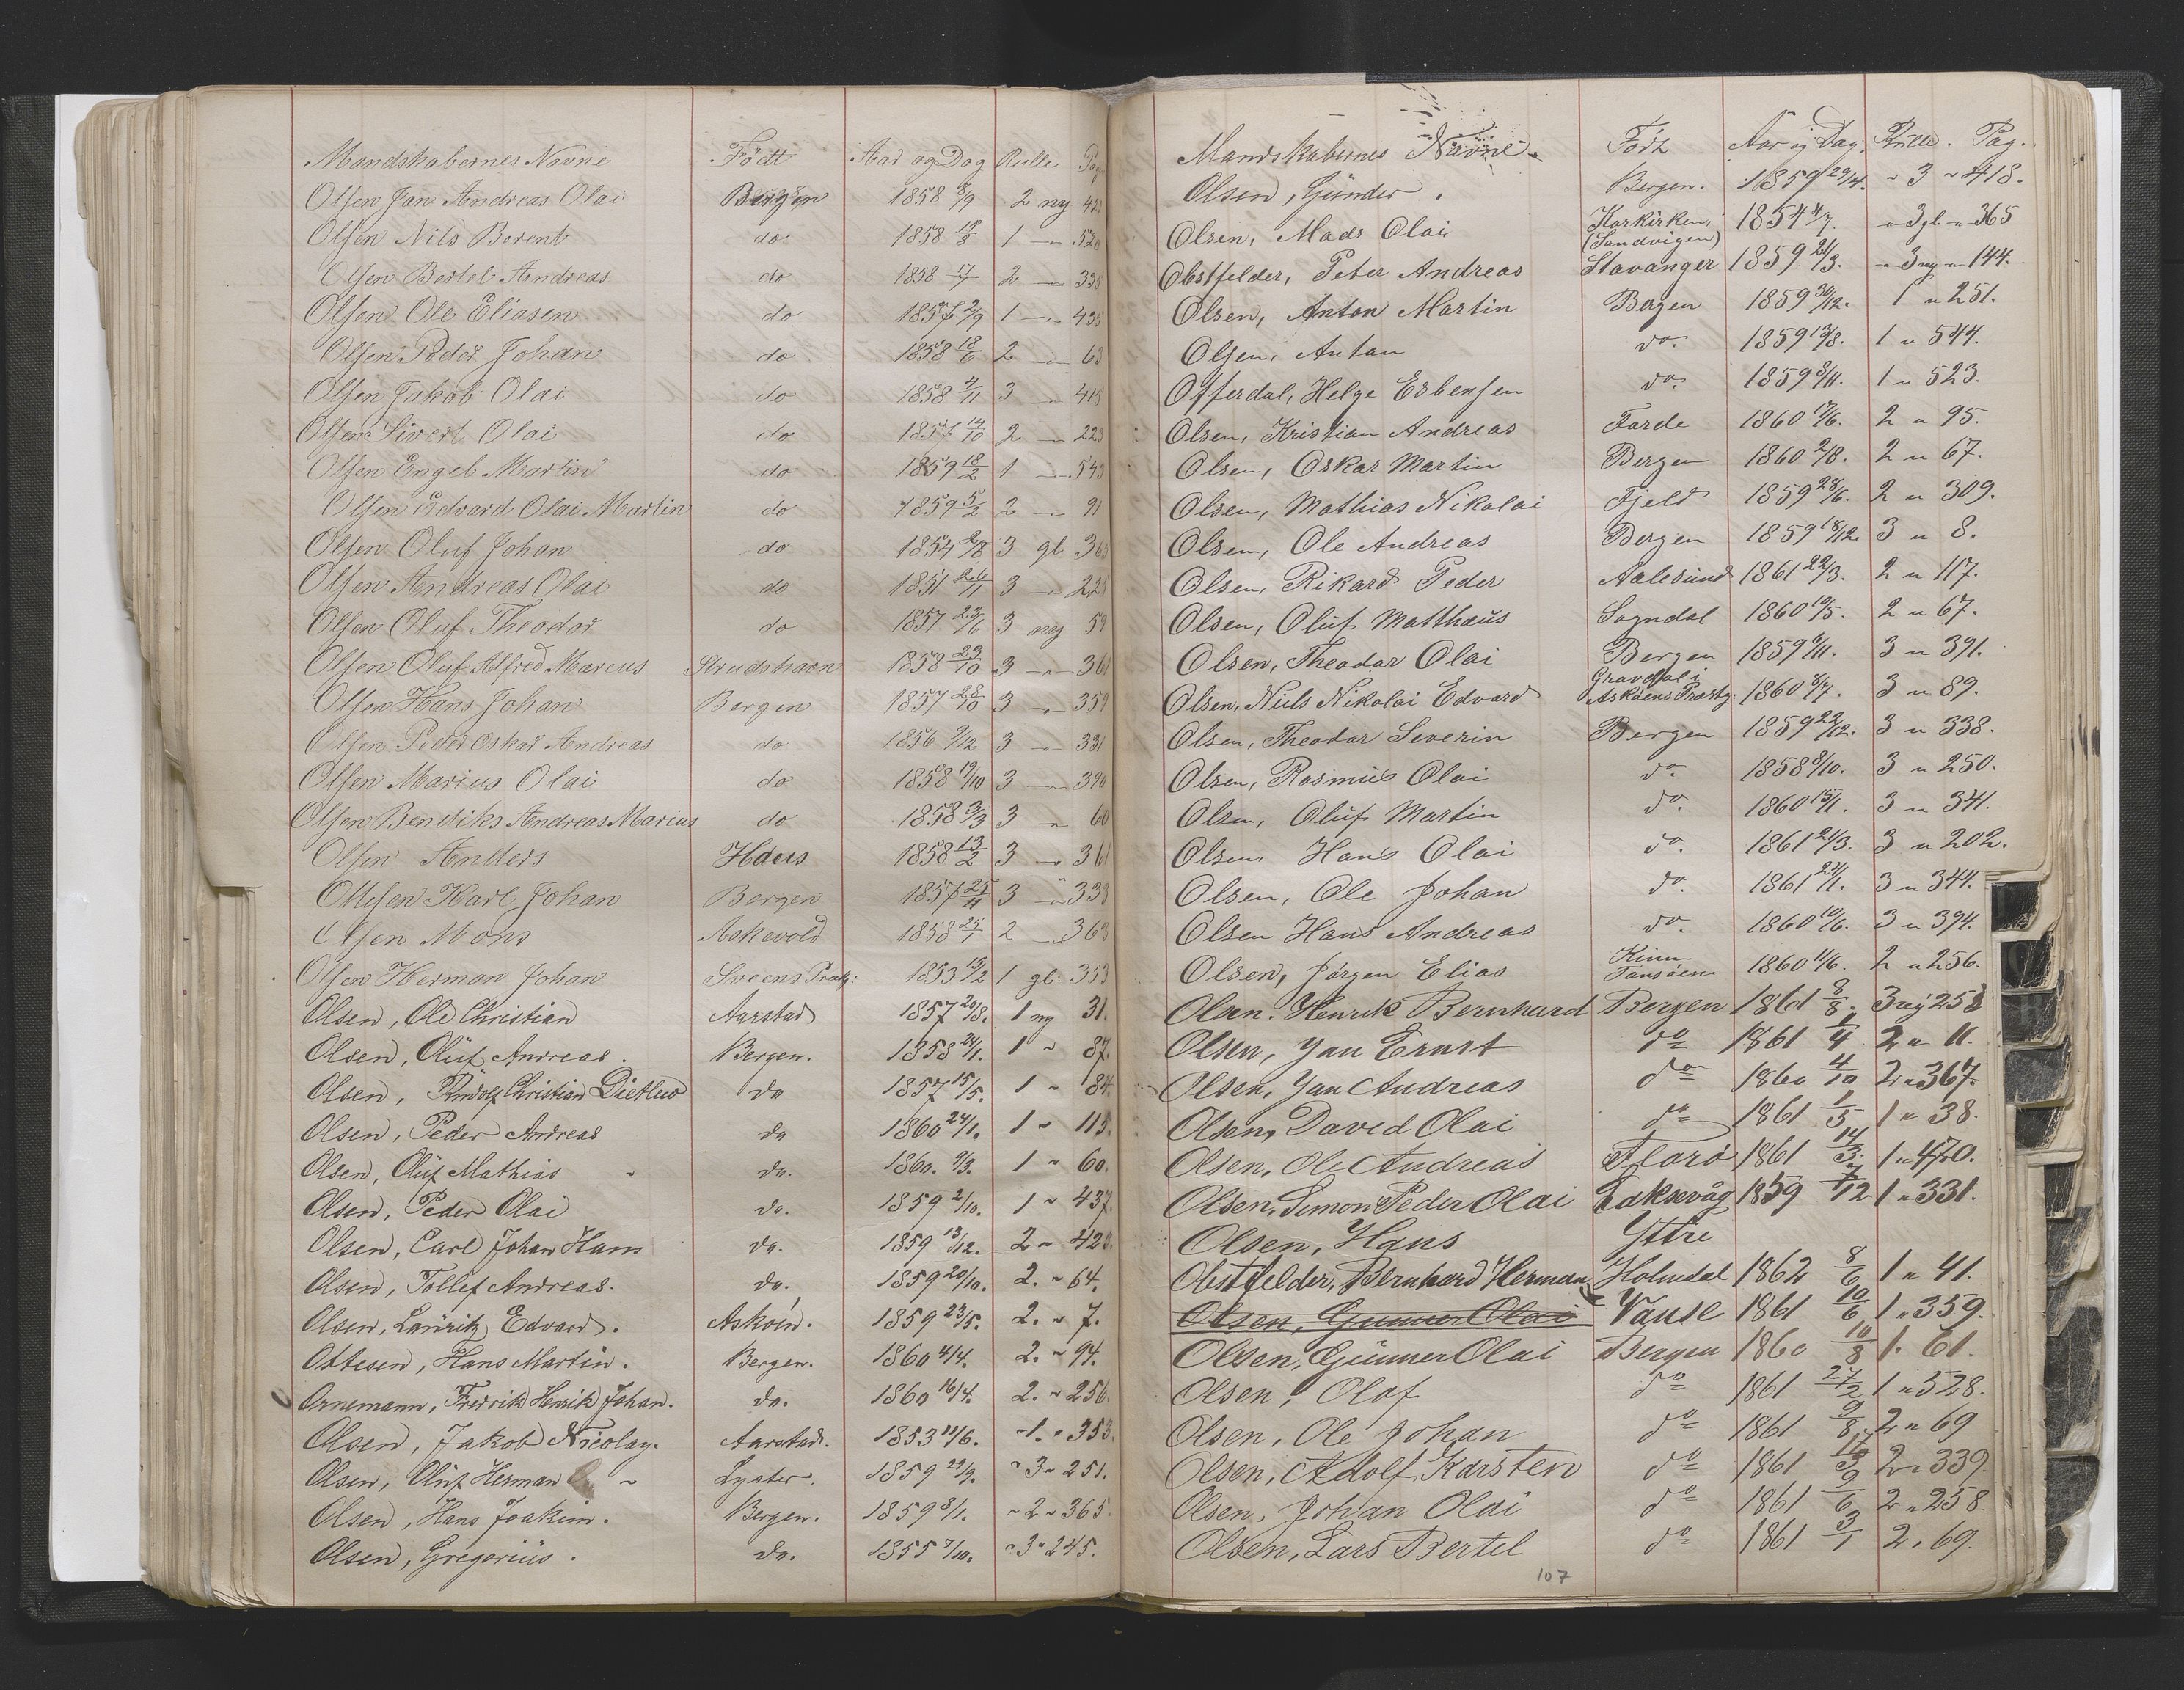 Mandskabernes Navne Født Aar og Dag Rulle Pag
Olsen Jan Andreas Olai Bergen 1858 8/9 2 ny 422
Olsen Nils Berent do 1858 18/8 1 -"- 520
Olsen Bertel Andreas do 1858 17/7 2 -"- 338
Olsen Ole Eliasen do 1857 2/9 1 -"- 435
Olsen Peder Johan do 1858 18/6 2 -"- 63
Olsen Jakob Olai do 1858 4/11 3 -"- 415
Olsen Sivert Olai do 1857 14/10 2 -"- 223
Olsen Engel Martin do 1859 18/2 1 -"- 543
Olsen Edvard Olai Martin do 1859 5/2 2 -"- 91
Olsen Oluf Johan do 1854 2/8 3 gl 365
Olsen Andreas Olai do 1851 26/11 3 -"- 228
Olsen Oluf Theodor do 1857 23/6 3 ny 59
Olsen Oluf Alfred Marcus Strudshavn 1858 23/10 3 -"- 361
Olsen Hans Johan Bergen 1857 28/10 3 -"- 359
Olsen Peder Oskar Andreas do 1856 9/12 3 -"- 331
Olsen Marius Olai do 1858 19/10 3 -"- 390
Olsen Bendiks Andreas Marius do 1858 3/3 3 " 60
Olsen Anders Haus 1858 13/2 3 -"- 361
Ottesen Karl Johan Bergen 1857 25/11 3 -"- 333
Olsen Mons Askevold 1858 25/1 2 -"- 363
Olsen Herman Johan Sveens Prstg: 1853 15/2 1 gl. 353
Olsen, Ole Christian Aarstad 1857 20/8. 1 ny 31.
Olsen, Oluf Andreas. Bergen. 1858 24/1. 1 " 87.
Olsen, Rudolf Christian Dietlew do 1857 15/5. 1 " 84.
Olsen, Peder Andreas do 1860 24/1. 1 " 115.
Olsen, Oluf Mathias do. 1860. 9/3. 1 " 60.
Olsen, Peder Olai do. 1859 2/10. 1 " 437.
Olsen, Carl Johan Hans do. 1859 13/12. 2 " 423.
Olsen, Tollef Andreas. do. 1859 20/10. 2. " 64.
Olsen, Lauritz Edvard. Askøen. 1859 23/5. 2. " 7.
Ottesen, Hans Martin. Bergen. 1860 4/4. 2. " 94.
Ornemann, Fredrik Henrik Johan. do. 1860 16/4. 2. " 256.
Olsen, Jakob Nicolay. Aarstad. 1853 11/6. " 1. " 353.
Olsen, Oluf Herman Lyster. 1859 29/9. " 3 " 251.
Olsen, Hans Joakim. Bergen. 1859 8/1. " 2 " 365.
Olsen, Gregorius. do. 1855 7/10. " 3 " 245.
Mandskabernes Navne. Født Aar og Dag. Rulle. Pag.
Olsen, Gunder. Bergen. 1859 29/4. " 3 " 418.
Olsen, Mads Olai Korkirken, (Sandvigen) 1854 4/7. " 3 gl " 365
Obstfelder, Peter Andreas Stavanger 1859 24/3. " 3 ny " 144.
Olsen, Anton Martin Bergen 1859 30/12. 1 " 251.
Olsen, Anton do. 1859 13/8. 1 " 544.
Offerdal, Helge Esbensen do. 1859 8/11. 1 " 523.
Olsen, Kristian Andreas Førde 1860 17/6. 2 " 95.
Olsen, Oskar Martin Bergen 1860 2/8. 2 " 67.
Olsen, Mathias Nikolai Fjeld 1859 28/6. 2 " 309.
Olsen, Ole Andreas Bergen 1859 18/12. 3 " 8.
Olsen, Rikard Peder Aalesund 1861 22/3. 2 " 117.
Olsen, Oluf Matthæus Sogndal 1860 10/5. 2 " 67.
Olsen, Theodor Olai Bergen 1859 6/11. 3 " 391.
Olsen, Niels Nikolai Edvard Gravdal i Askøens Præstg: 1860 8/7. 3 " 89.
Olsen, Theodor Severin Bergen 1859 22/12. 3 " 338.
Olsen, Rasmus Olai do. 1858 8/10. 3 " 250.
Olsen, Oluf Martin do. 1860 15/1. 3 " 341.
Olsen, Hans Olai do. 1861 21/3. 3 " 202.
Olsen, Ole Johan do. 1861 24/1. 3 " 344.
Olsen Hans Andreas do. 1860 10/6. 3 " 394.
Olsen, Jørgen Elias Kinn 1860 11/6. 2 " 256.
Olsen. Henrik Bernhard Bergen 1861 8/8. 3 ny 253
Olsen, Jan Ernst do 1861 1/4 2 " 11.
Olsen, Jan Andreas do 1860 4/10 2 " 367.
Olsen, David Olai do 1861 1/5 1 " 38.
Olsen, Ole Andreas Florø 1861 14/3. 1 " 470.
Olsen, Simon Peder Olai Laksevåg 1859 7/12 1 " 331.
Olsen, Hans Yttre
Obstfelder, Bernhard Herman Holmdal 1862 8/6 1 " 41.
Olsen, Gunner Olai Vanse 1861 10/6 1 " 359.
Olsen, Gunner Olai Bergen 1860 10/8 1 " 61.
Olsen, Olaf do 1861 27/2 1 " 528.
Olsen, Ole Johan do 1861 9/8 2 " 69
Olsen, Adolf Karsten do 1861 2 " 339.
Olsen, Johan Olai do 1861 9/6 2 " 258.
Olsen, Lars Bertel do 1861 3/1 2 " 69.
107